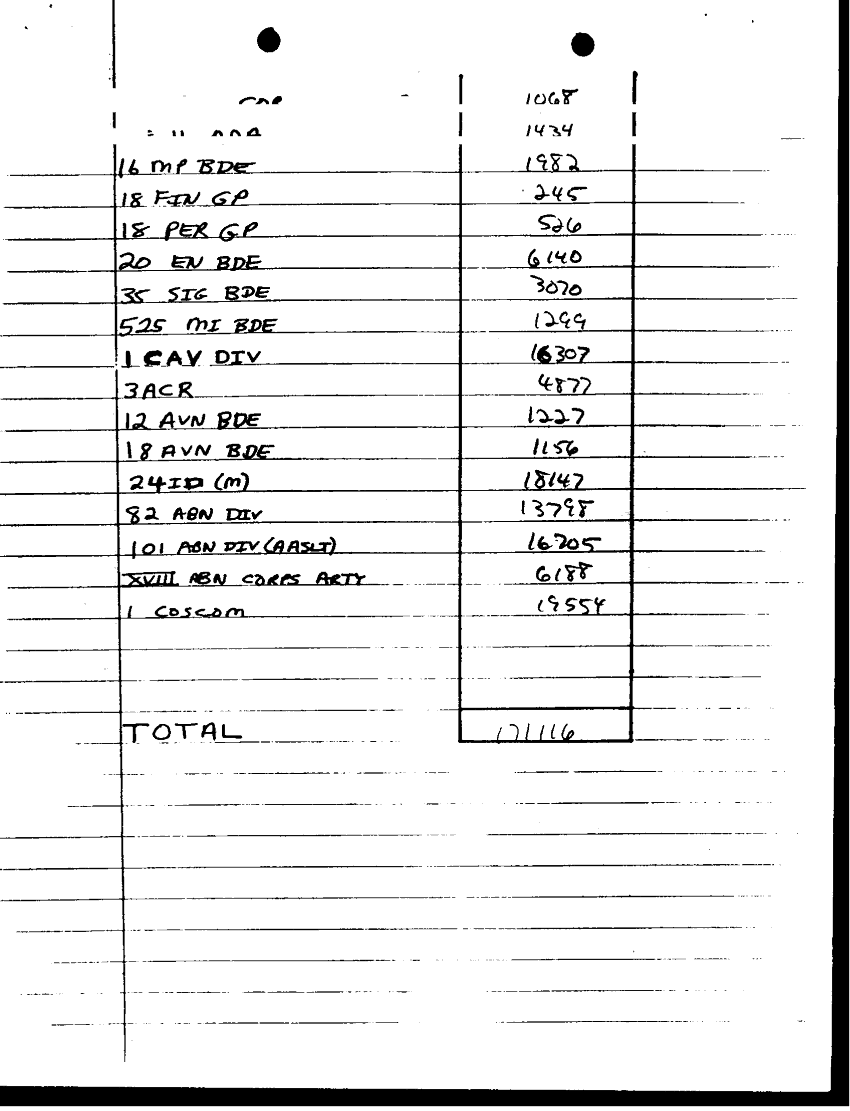 1068
1434
16 MP BDE 1982
18 FIN GP 245
18 PER GP 526
20 EN BDE 6140
35 SIG BDE 3070
525 MI BDE 1299
1 CAV DIV 16307
3 ACR 4877
12 AVN BDE 1227
18 AVN BDE 1156
24 ID (M) 18147
82 ABN DIV 13798
101 ABN DIV (AASLT) 16705
XVIII ABN CORPS ARTY 6188
1 COSCOM 19554
TOTAL 171116